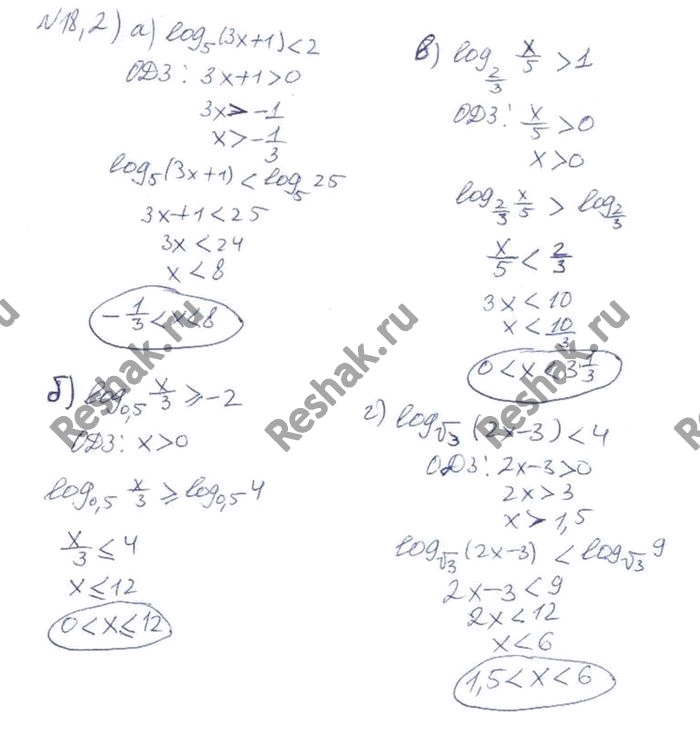 №18,2) а) log₅(3x+1)<2
ОДЗ: 3x+1>0
3x>-1
x>-1/3
log₅(3x+1)<log₅25
3x+1<25
3x<24
x<8
-1/3<x<8
б) log₀,₅ x/3 ≥ -2
ОДЗ: x>0
log₀,₅ x/3 ≥ log₀,₅4
x/3 ≤ 4
x≤12
0<x≤12
в) log_{2/3} x/5 >1
ОДЗ: x/5 >0
x>0
log_{2/3} x/5 > log_{2/3}
x/5 < 2/3
3x<10
x<10/3
0<x<3 1/3
г) log_{√3}(2x-3)<4
ОДЗ: 2x-3>0
2x>3
x>1,5
log_{√3}(2x-3) < log_{√3}9
2x-3<9
2x<12
x<6
1,5<x<6
Reshak.ru
Reshak.ru
Reshak.ru